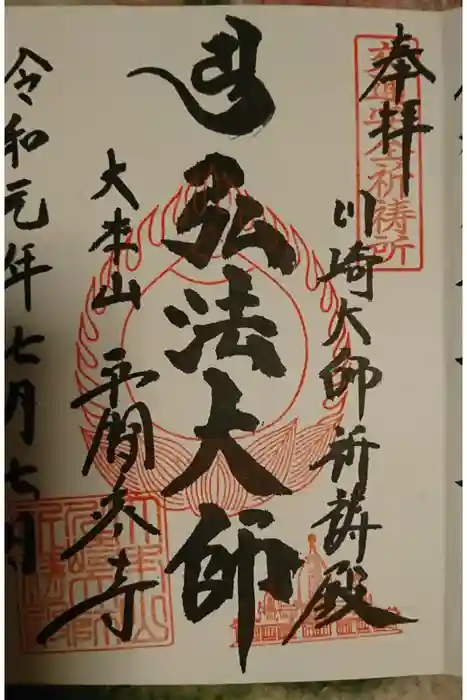 奉拝
交通安全祈祷所
川崎大師祈祷殿
弘法大師
大本山 平間寺
令和元年七月七日